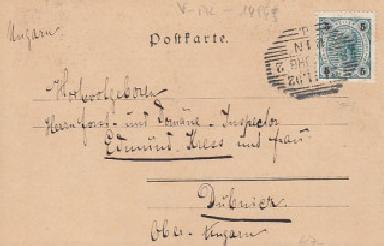 Ungarn
Postkarte.
5 5
Hochwolgeboren
Herrn Forst- und Domäne-Inspector
Edmund Krees und Frau
Dubnicz
Ober-Ungarn